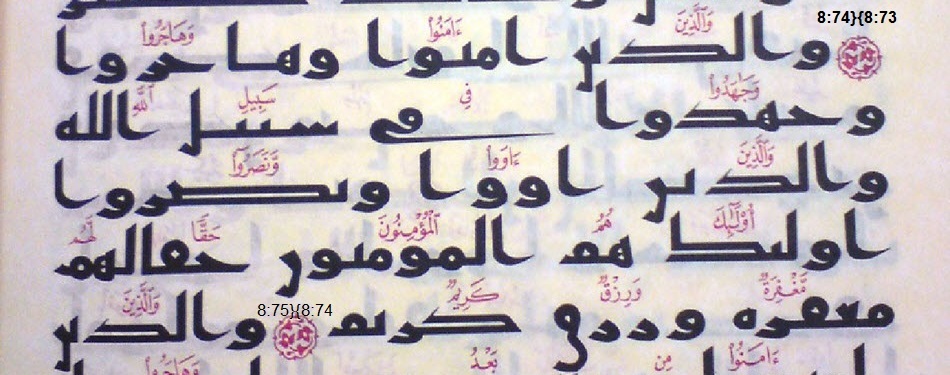 8:74}{8:73
وَٱلَّذِينَ ءَامَنُوا۟ وَهَاجَرُوا۟
والدين امنوا وهاجروا
وَجَٰهَدُوا۟ فِى سَبِيلِ ٱللَّهِ
وجهدوا في سبيل الله
وَٱلَّذِينَ ءَاوَوا۟ وَّنَصَرُوٓا۟
والدين اووا ونصروا
أُو۟لَٰٓئِكَ هُمُ ٱلْمُؤْمِنُونَ حَقًّا لَّهُم
اولىك هم المومنون حقا لهم
مَّغْفِرَةٌ وَرِزْقٌ كَرِيمٌ وَٱلَّذِينَ
مغفره ورزق كريم 8:75}{8:74 والدين
ءَامَنُوا۟ مِنۢ بَعْدُ وَهَاجَرُوا۟